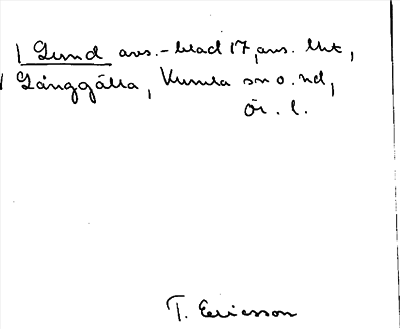 Lund avs.-blad 17, ans. lht,
Långgälla, Kumla sn o. hd,
Ör. l.
T. Ericsson